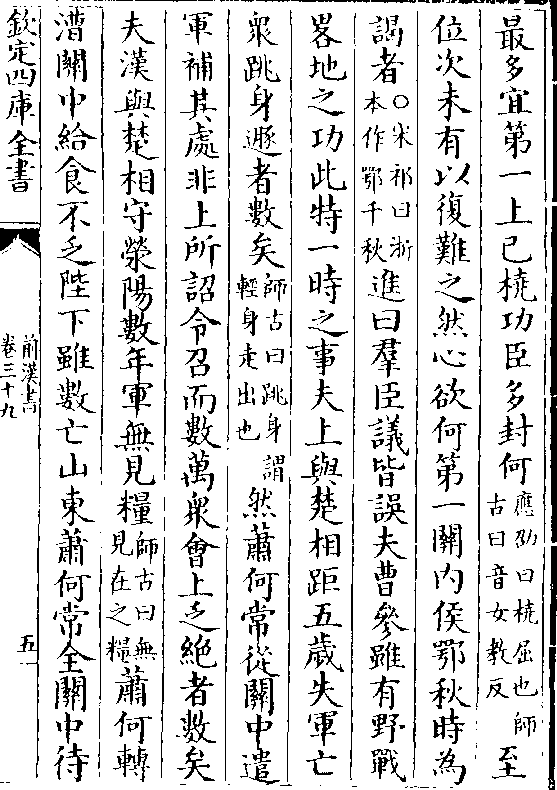 最多宜第一上已橈功臣多封何應劭曰橈屈也師古曰音女教反至
位次未有以復難之然心欲何第一關内侯鄂秋時為
謁者○宋祁曰浙本作鄂千秋進曰羣臣議皆誤夫曹參雖有野戰
畧地之功此特一時之事夫上與楚相距五歲失軍亡
衆跳身遯者數矣師古曰跳身謂輕身走出也然蕭何常從關中遣
軍補其處非上所詔令召而數萬衆會上乏絶者數矣
夫漢與楚相守滎陽數年軍無見糧師古曰無見在之糧蕭何轉
漕關中給食不乏陛下雖數亡山東蕭何常全關中待
欽定四庫全書
前漢書
卷三十九
五